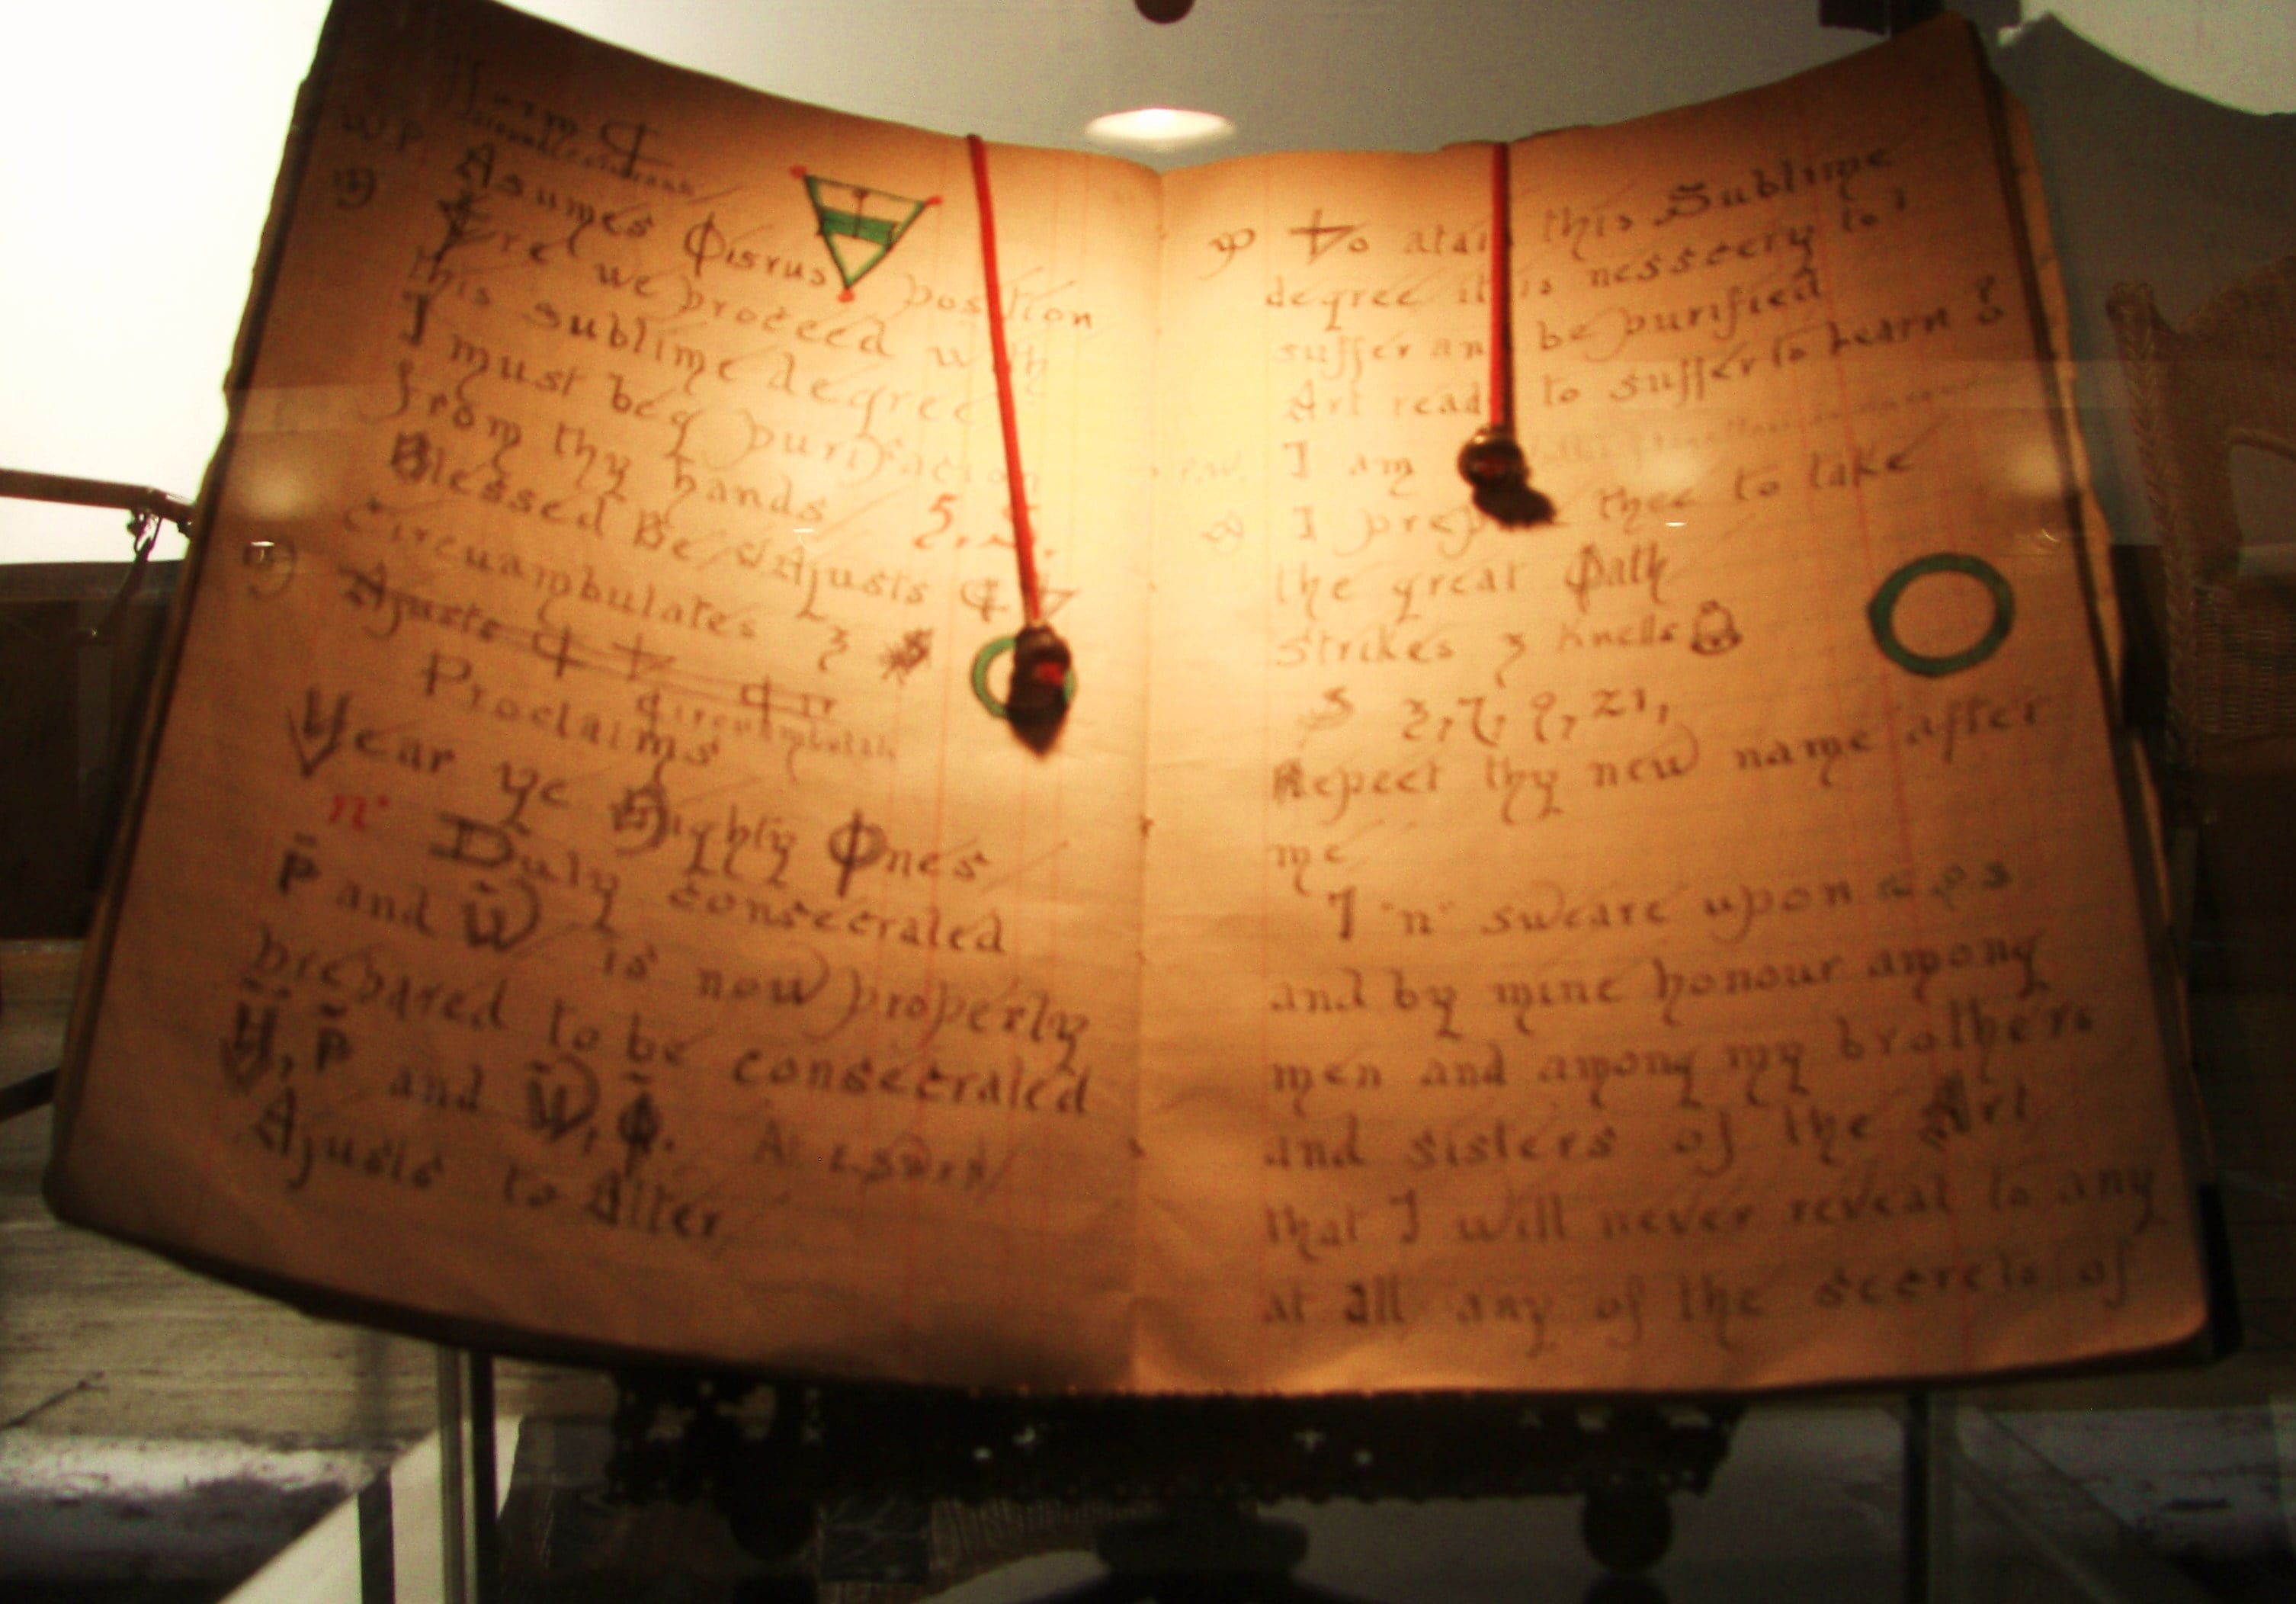 Form
W P Asumes Osirus position
Ere we proceed with
this sublime degree
I must beg
from thy hands
Blessed Be Ajusts
Circuambulates 3
Ajusts
Circumbulate
Proclaims
Hear ye Mighty Ones
"n" Duly consecrated
P and W is now properly
prepared to be consecrated
H, P and W,
Ajusts to Alter
To atain this Sublime
degree it is nessecery to
suffer and be purified
Art ready to suffer to Learn ?
P.W. I am
I prepare thee to take
the great Path
Strikes 3 Knells
S 3, 7, 9, 21,
Repeet thy new name after
me
I "n" sweare upon
and by mine honour among
men and among my brothers
and sisters of the Art
that I will never reveal to any
at all any of the secrets of